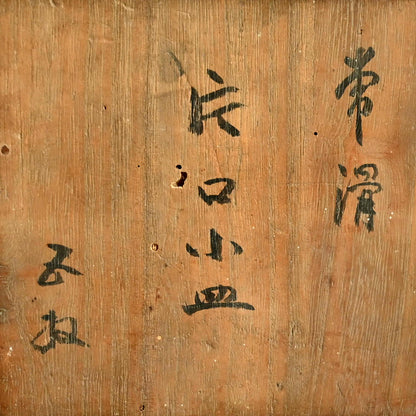 常滑
片口小皿
五枚